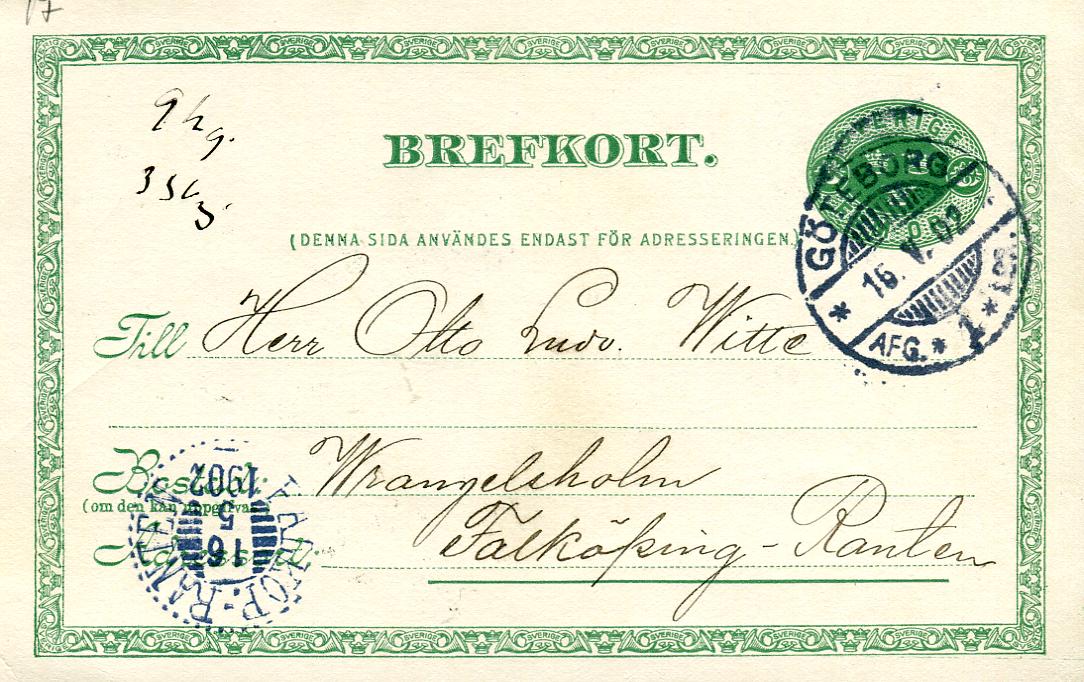 17
BREFKORT.
SVERIGE
GÖTEBORG
16. V. 02
AFG. * 1 *
(DENNA SIDA ANVÄNDES ENDAST FÖR ADRESSERINGEN.)
Till Herr Otto Ludv. Witte
Bostad: Wrangelsholm
(om den kan uppgifvas)
Adressort: Falköping-Ranten
FALKÖP.-RANTEN
16
5
1902